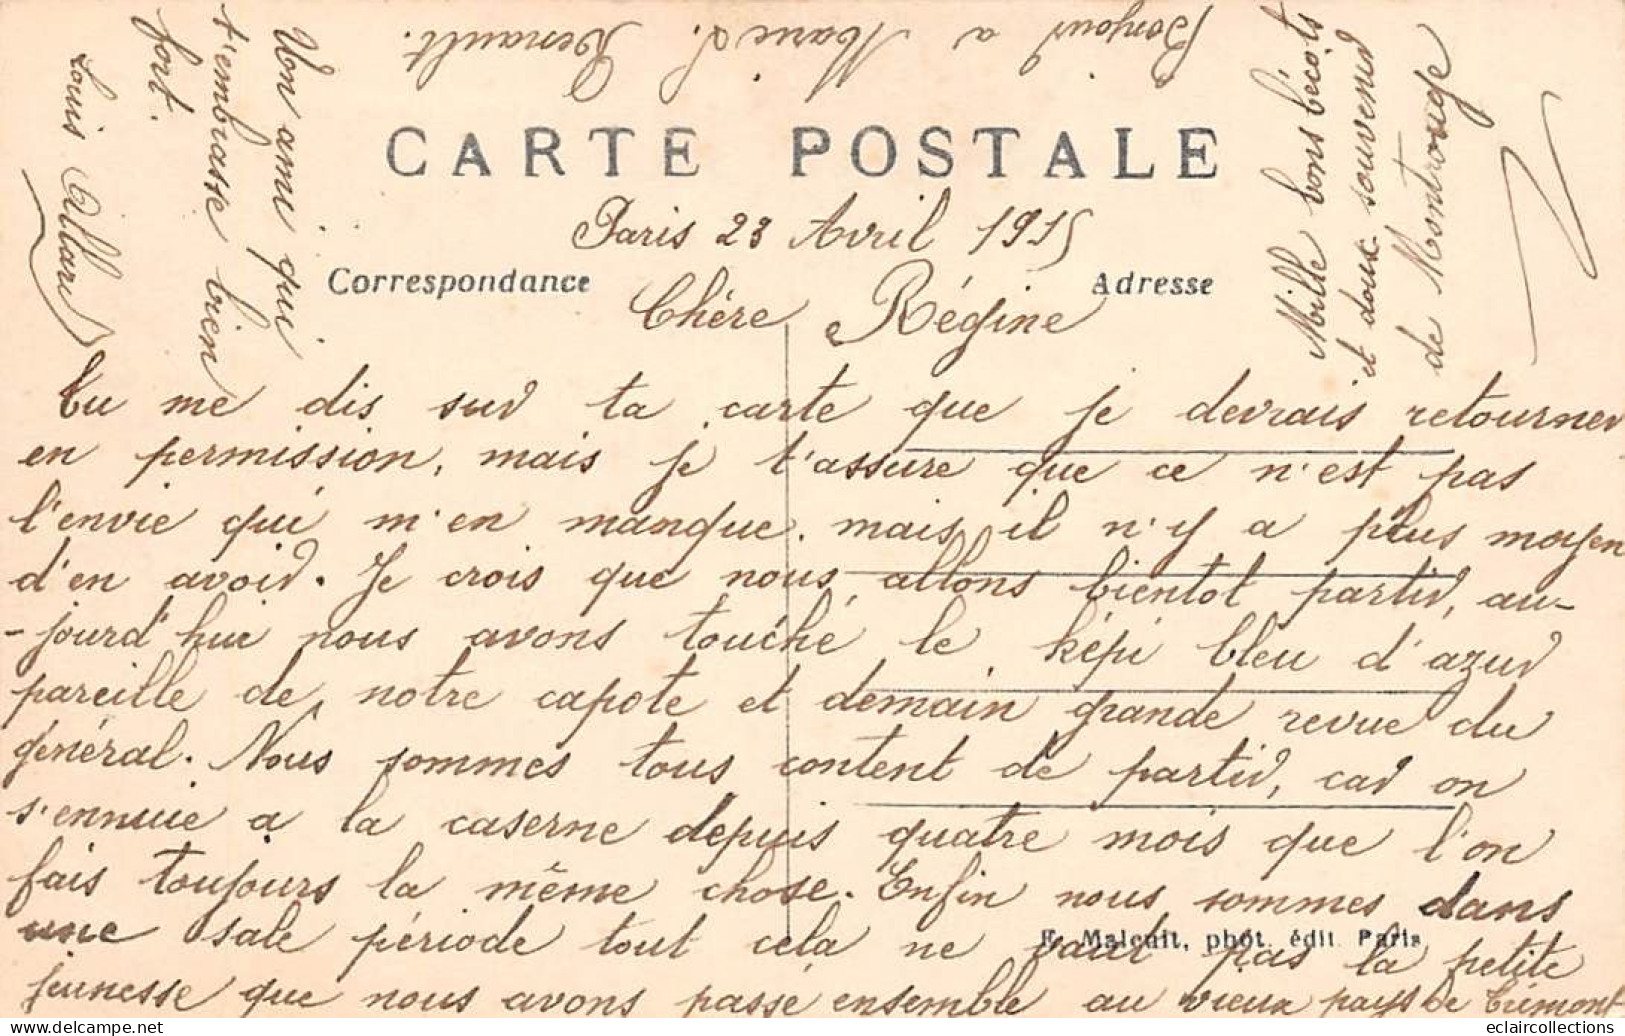 CARTE POSTALE
Paris 23 Avril 1915
Correspondance
Adresse
Chère Régine
Tu me dis sur ta carte que je devrais retourner
en permission, mais je t'assure que ce n'est pas
l'envie qui m'en manque. mais il n'y a plus moyen
d'en avoir. Je crois que nous allons bientot partir, au-
-jourd'hui nous avons touché le képi bleu d'azur
pareille de notre capote et demain grande revue du
général. Nous sommes tous content de partir, car on
s'ennuie a la caserne depuis quatre mois que l'on
fais toujours la même chose. Enfin nous sommes dans
une sale période tout cela ne vaut pas la petite
jeunesse que nous avons passé ensemble au vieux pays de Trémont
E. Malcuit, phot. édit. Paris
Ton ami qui
t'embrasse bien
fort.
Louis Allard
Bonjour a Marie L. Renault.
Mille bons bécots
et doux souvenir
de Montrouge
eclaircollections